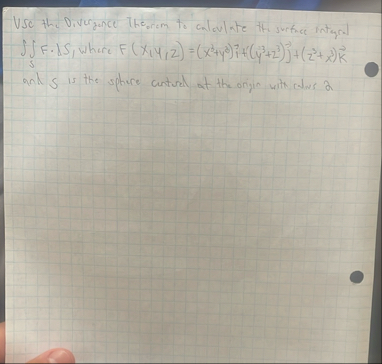 Use the Divergence Theorem to calculate the surface integral
∬ F·dS, where F(x,y,z)=(x³+y³)i+(y³+z³)j+(z³+x³)k
S
and S is the sphere centered at the origin with radius 2